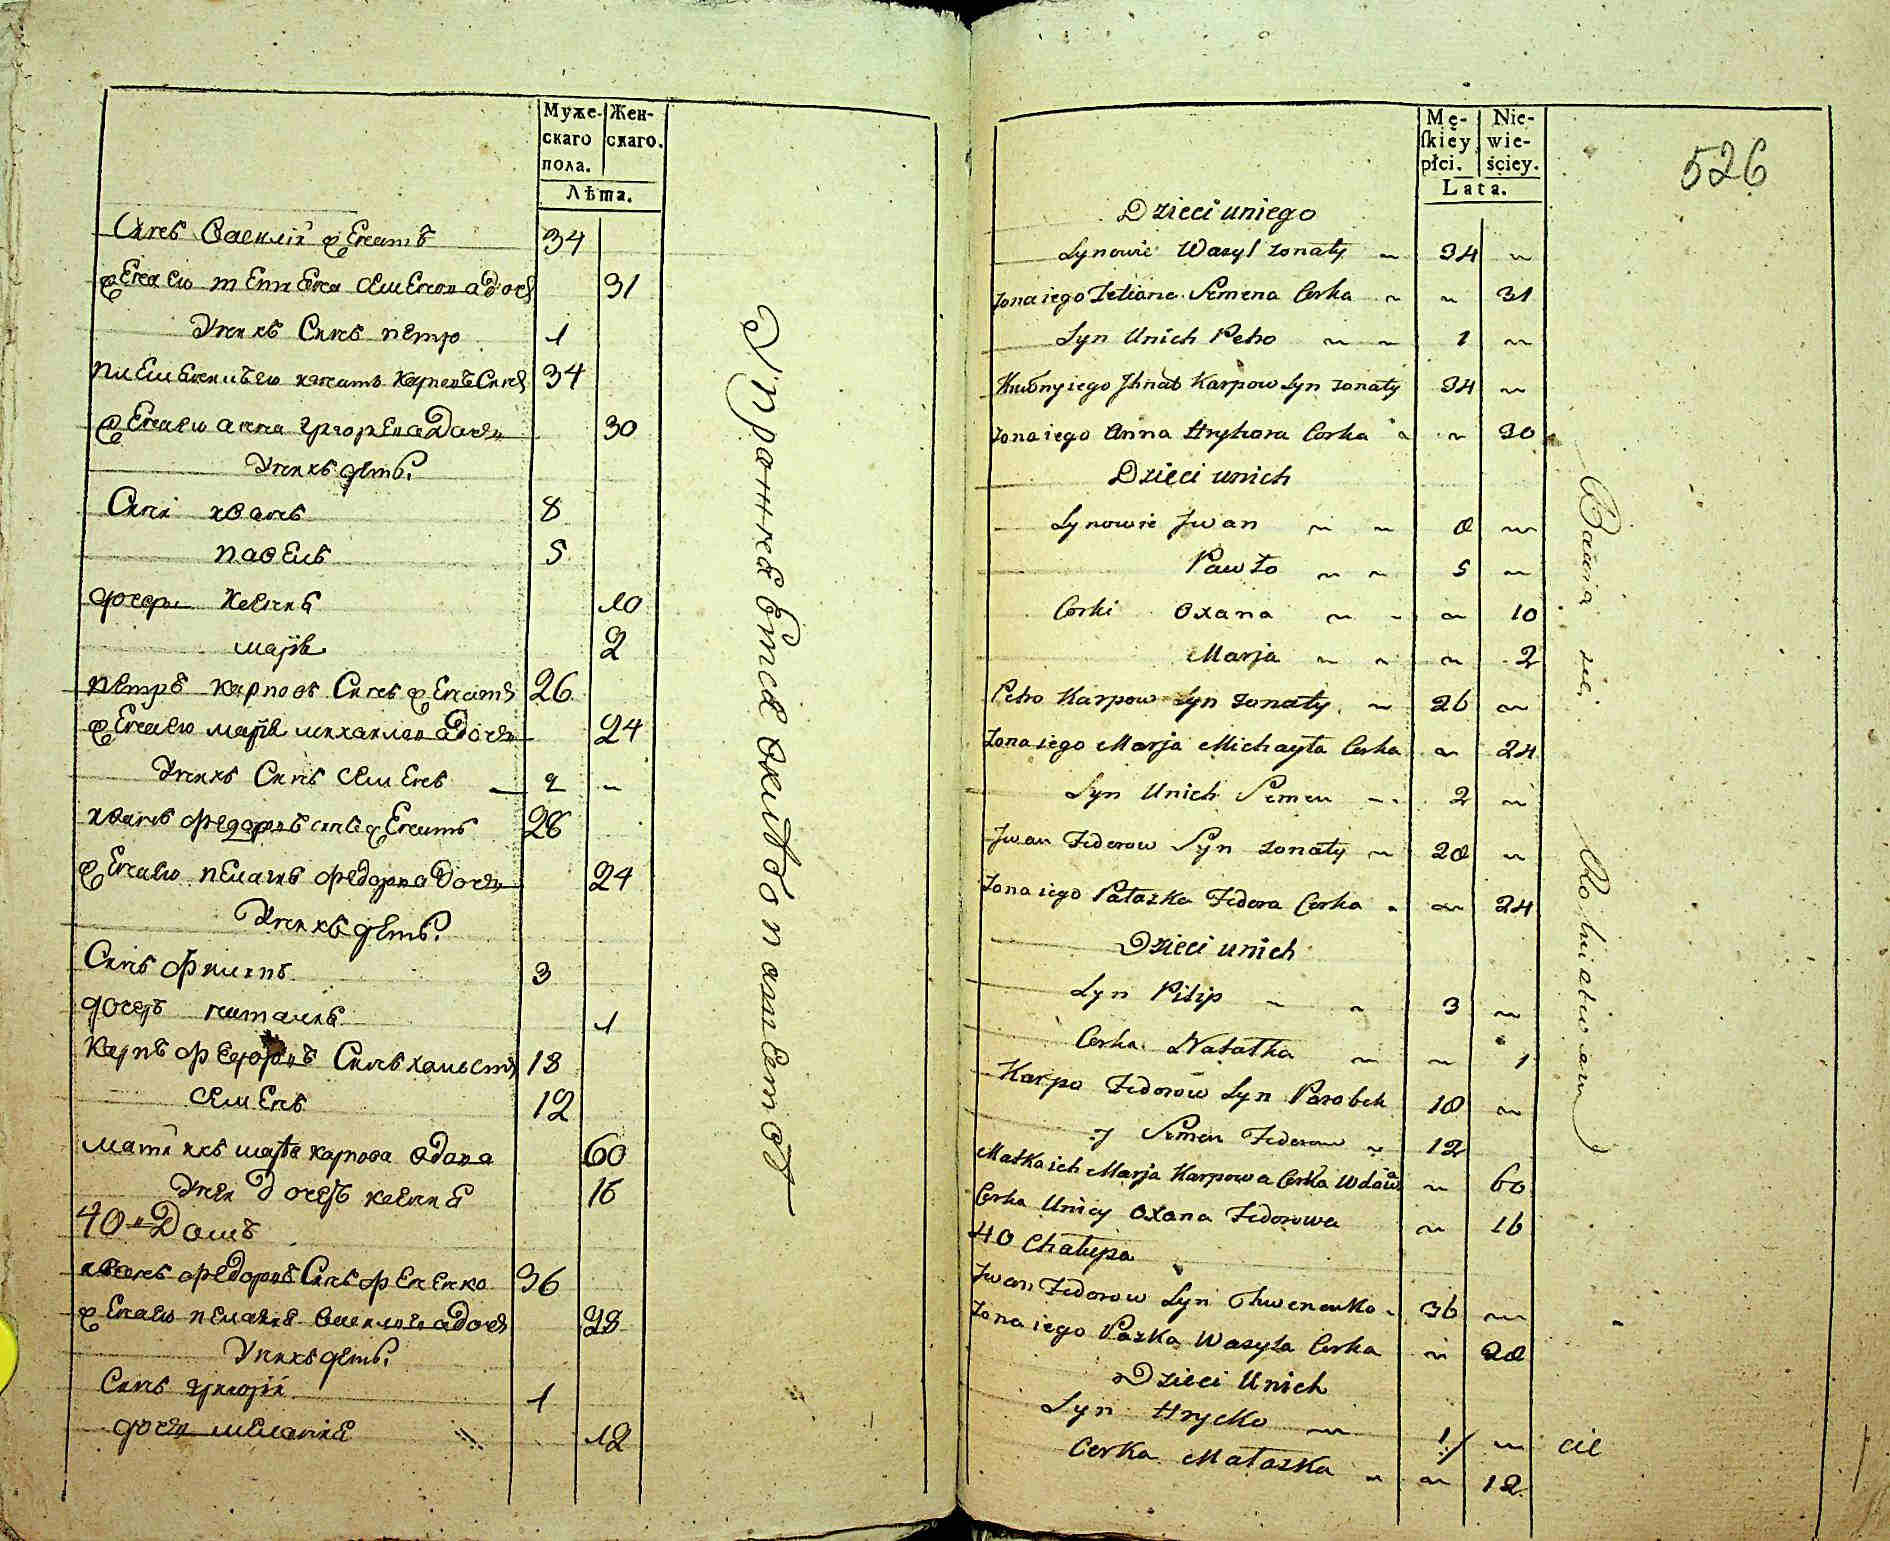 Муже-
скаго
пола.
Жен-
скаго.
Лѣта.
Синъ Василій женатъ 34
жена ево 31
У нихъ Синъ петро 1
женатъ 34
жена ево анна 30
У нихъ дети:
Сини иванъ 8
павелъ 5
дочери 10
марія 2
петръ карповъ Синъ женатъ 26
жена ево марія михаилова дочь 24
У нихъ Синъ семенъ 2 ~
иванъ федоровъ синъ женатъ 28
жена ево пелагія федорова дочь 24
У нихъ дети:
Синъ филипъ 3
дочерь наталия 1
карпъ федоровъ Синъ холостъ 18
семенъ 12
мати ихъ марія карпова вдова 60
У неи дочерь 16
40й Домъ
иванъ федоровъ Синъ 36
жена ево пелагия дочь 28
У нихъ дети:
Синъ григорій 1
дочь меланія 12
Упражняется в хлебопашестве
Mę-
ſkiey
płci.
Nie-
wie-
ściey.
Lata.
526
Dzieci uniego
Synowie Wasyl żonaty ~ 34 ~
Zona iego Tetiana Semena Corka ~ ~ 31
Syn Unich Petro ~ ~ 1 ~
iego Jhnat Karpow Syn żonaty 34 ~
Zona iego Anna Hryhora Corka ~ ~ 30
Dzieci unich
Synowie Jwan ~ ~ 8 ~
Pawło ~ ~ 5 ~
Corki Oxana ~ ~ ~ 10
Marja ~ ~ ~ 2
Petro Karpow Syn żonaty ~ 26 ~
Zona iego Marja Michayła Corka ~ 24
Syn Unich Semen ~ 2 ~
Jwan Fedorow Syn żonaty ~ 28 ~
Zona iego Pałażka Fedora Corka ~ ~ 24
Dzieci unich
Syn Pilip ~ ~ 3 ~
Corka Natałka ~ ~ 1
Karpo Fedorow Syn Parobek 18 ~
Semen Fedorow ~ 12
Matka ich Marja Karpowa Corka Wdowa ~ 60
Corka Unicy Oxana Fedorowa ~ 16
40 Chałupa
Jwan Fedorow Syn 36 ~
Zona iego Pazka Wasyla Corka ~ 28
Dzieci Unich
Syn Hrycko ~ 1 ~
Corka Małaszka ~ ~ 12
Bawią się Rolnictwem